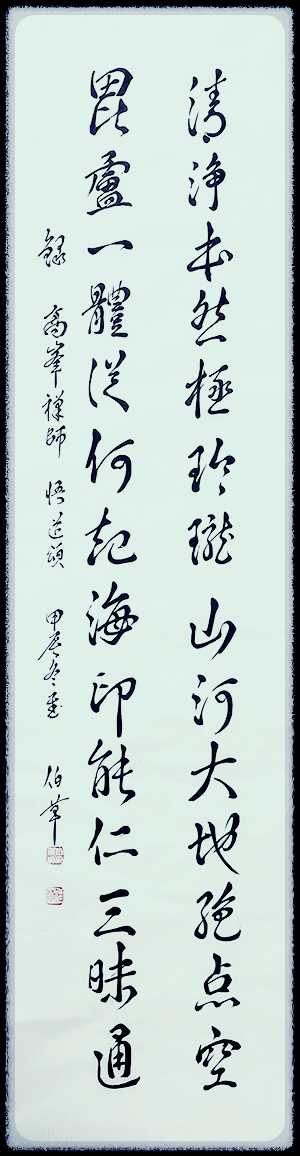 清淨本然極玲瓏山河大地絶点空
毘盧一體從何起海印能仁三昧通
錄 高峯禅師 悟道頌 甲辰冬至 伯華